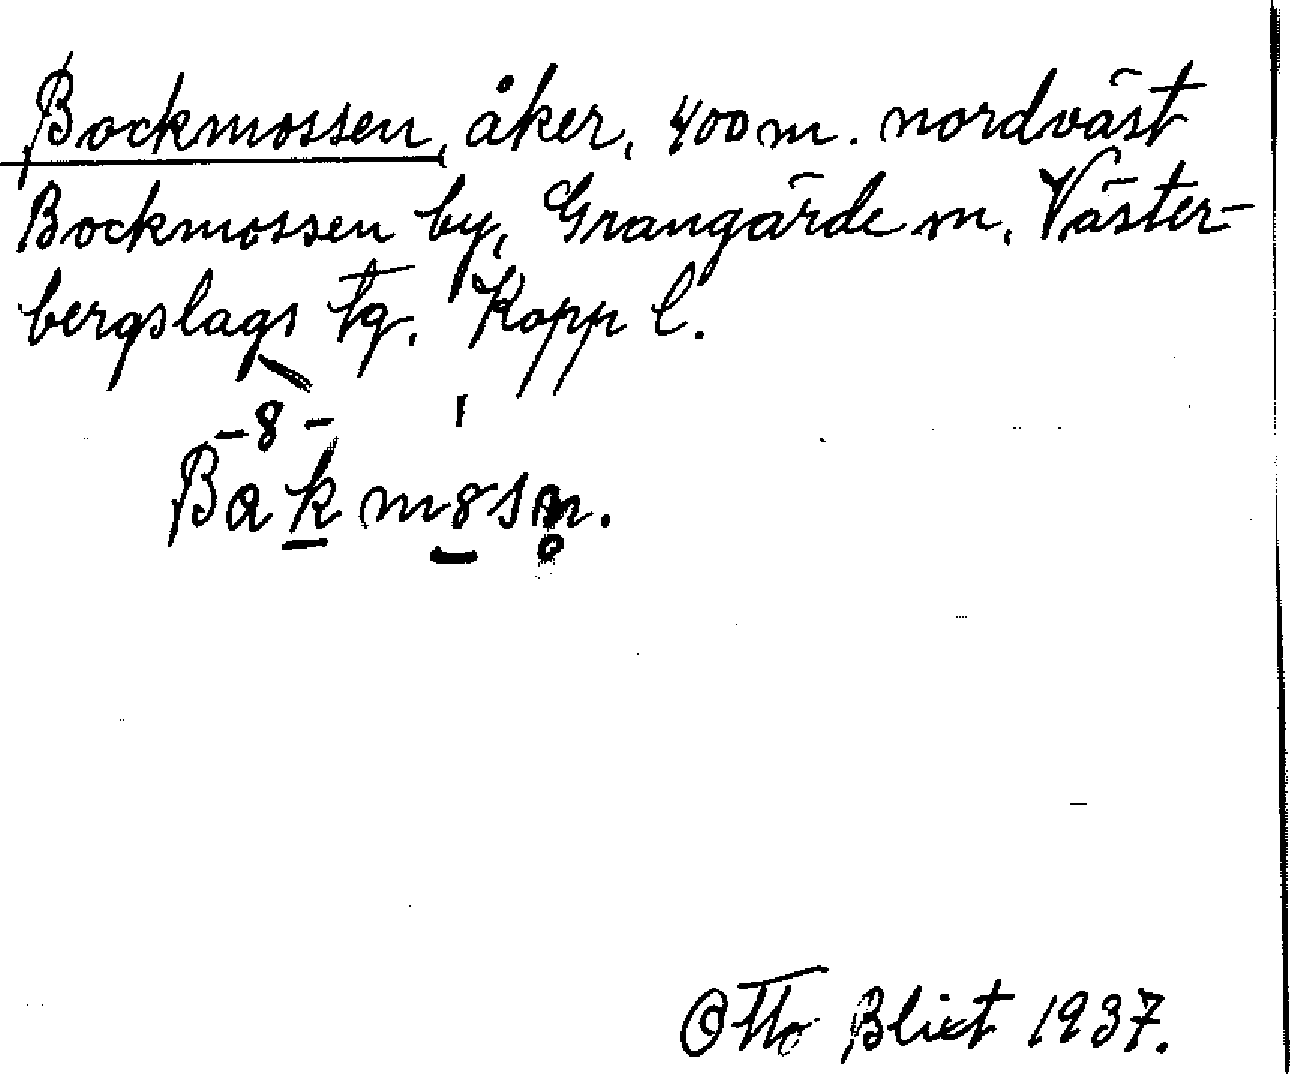 Bockmossen, åker, 400 m. nordväst
Bockmossen by, Grangärde m, Väster-
bergslags tg. Kopp l.
-8-
Bakm8sn.
Otto Blixt 1937.